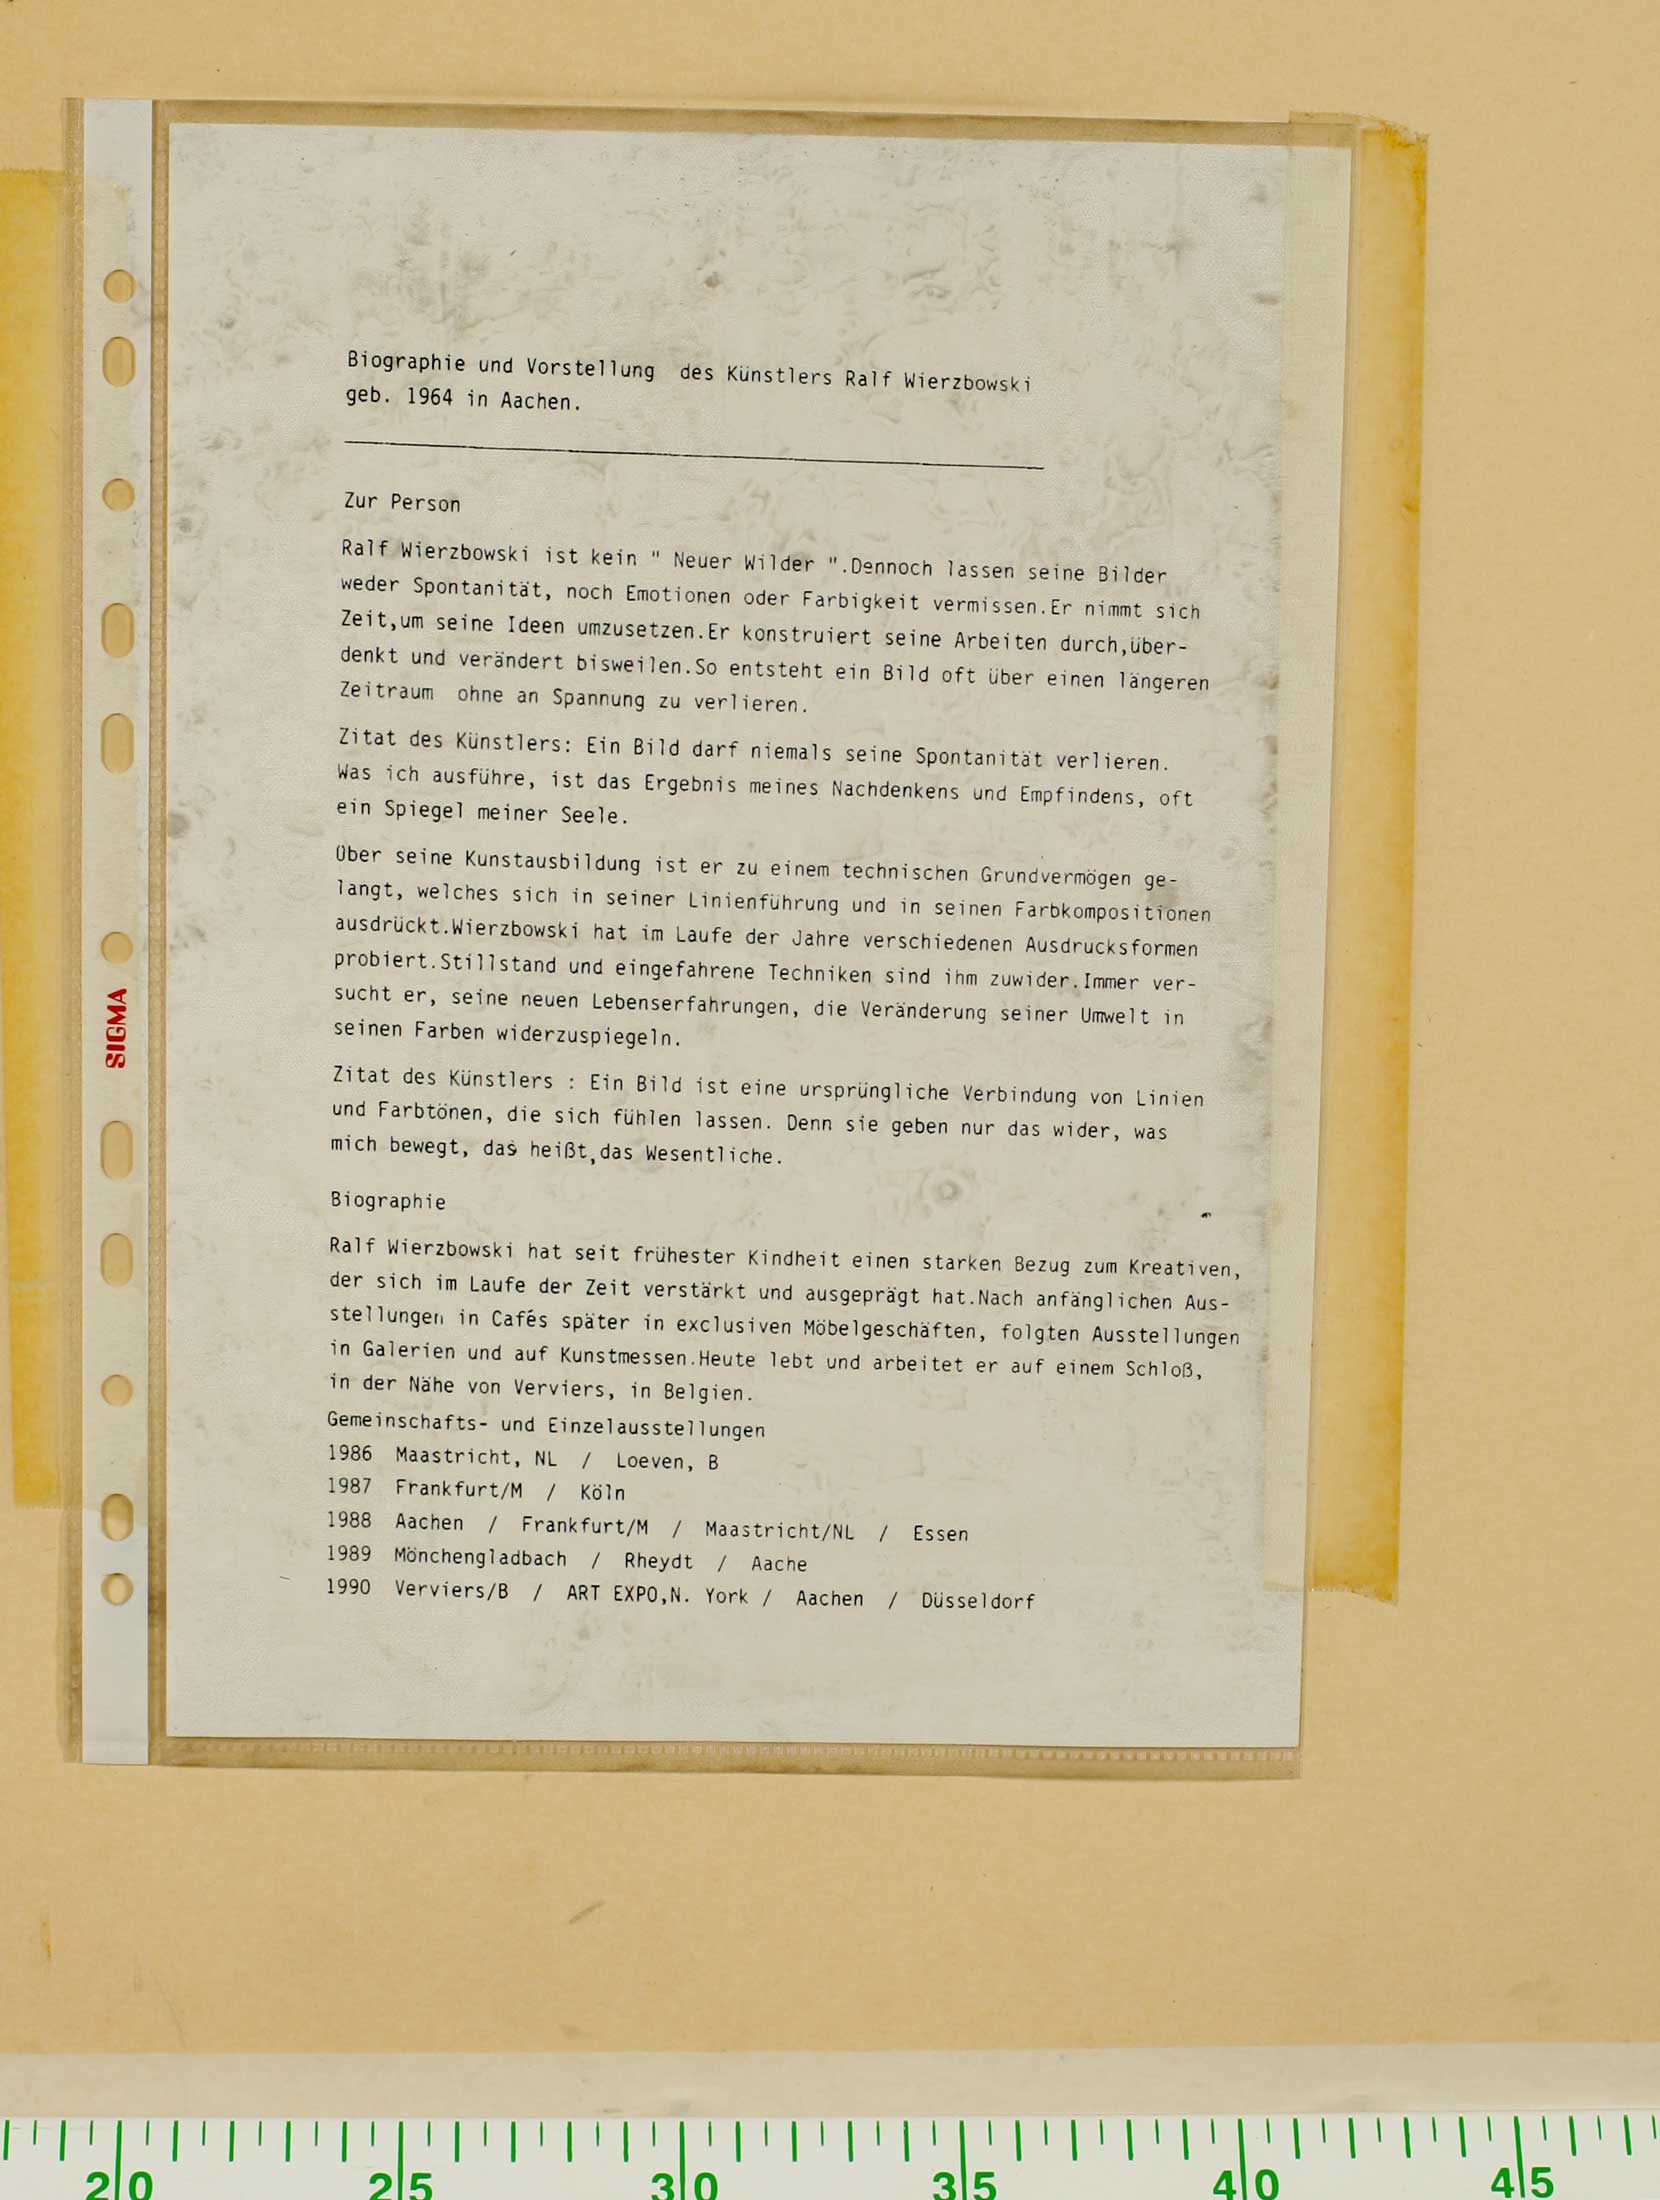 Biographie und Vorstellung  des Künstlers Ralf Wierzbowski
geb. 1964 in Aachen.
Zur Person
Ralf Wierzbowski ist kein " Neuer Wilder ".Dennoch lassen seine Bilder
weder Spontanität, noch Emotionen oder Farbigkeit vermissen.Er nimmt sich
Zeit,um seine Ideen umzusetzen.Er konstruiert seine Arbeiten durch,über-
denkt und verändert bisweilen.So entsteht ein Bild oft über einen längeren
Zeitraum  ohne an Spannung zu verlieren.
Zitat des Künstlers: Ein Bild darf niemals seine Spontanität verlieren.
Was ich ausführe, ist das Ergebnis meines Nachdenkens und Empfindens, oft
ein Spiegel meiner Seele.
Über seine Kunstausbildung ist er zu einem technischen Grundvermögen ge-
langt, welches sich in seiner Linienführung und in seinen Farbkompositionen
ausdrückt.Wierzbowski hat im Laufe der Jahre verschiedenen Ausdrucksformen
probiert.Stillstand und eingefahrene Techniken sind ihm zuwider.Immer ver-
sucht er, seine neuen Lebenserfahrungen, die Veränderung seiner Umwelt in
seinen Farben widerzuspiegeln.
Zitat des Künstlers : Ein Bild ist eine ursprüngliche Verbindung von Linien
und Farbtönen, die sich fühlen lassen. Denn sie geben nur das wider, was
mich bewegt, das heißt,das Wesentliche.
Biographie
Ralf Wierzbowski hat seit frühester Kindheit einen starken Bezug zum Kreativen,
der sich im Laufe der Zeit verstärkt und ausgeprägt hat.Nach anfänglichen Aus-
stellungen in Cafés später in exclusiven Möbelgeschäften, folgten Ausstellungen
in Galerien und auf Kunstmessen.Heute lebt und arbeitet er auf einem Schloß,
in der Nähe von Verviers, in Belgien.
Gemeinschafts- und Einzelausstellungen
1986  Maastricht, NL  /  Loeven, B
1987  Frankfurt/M  /  Köln
1988  Aachen  /  Frankfurt/M  /  Maastricht/NL  /  Essen
1989  Mönchengladbach  /  Rheydt  /  Aache
1990  Verviers/B  /  ART EXPO,N. York /  Aachen  /  Düsseldorf
SIGMA
20 25 30 35 40 45